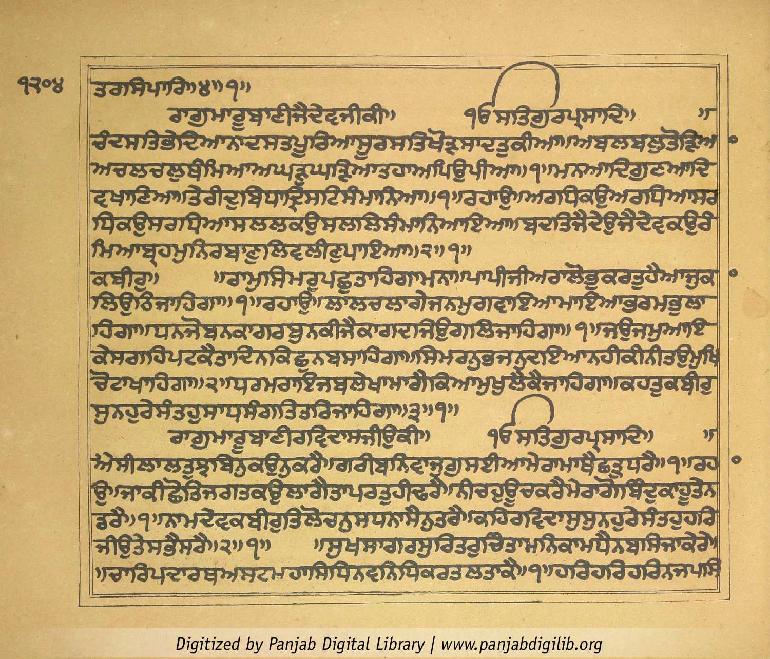 ੧੨੦੪
ਤਰਾਸਿਪਾਰਿ॥੪॥੧॥
ਰਾਗੁਮਾਰੂਬਾਣੀਜੈਦੇਵਜੀਕੀ॥ ੴਸਤਿਗੁਰਪ੍ਰਸਾਦਿ॥ ॥
ਚੰਦਸਤਿਭੇਦਿਆਨਾਦਸਤਪੂਰਿਆਸੂਰਸਤਿਖੋੜਸਾਦਤੁਕੀਆ॥ਅਬਲਬਲੁਤੋੜਿਆ
ਅਚਲਚਲੁਥੰਮਿਆਅਘੜੁਘੜਿਆਤਹਾਅਪਿਉਪੀਆ॥੧॥ਮਨਆਦਿਗੁਣਆਦਿ
ਵਖਾਣਿਆ॥ਤੇਰੀਦੁਬਿਧਾਦ੍ਰਿਸਟਿਸੰਮਾਨਿਆ॥੧॥ਰਹਾਉ॥ਅਰਧਿਕਉਅਰਧਿਆਸਰ
ਧਿਕਉਸਰਧਿਆਸਲਲਕਉਸਲਲਿਸੰਮਾਨਿਆਇਆ॥ਬਦਤਿਜੈਦੇਉਜੈਦੇਵਕਉਰੰ
ਮਿਆਬ੍ਰਹਮੁਨਿਰਬਾਣੁਲਿਵਲੀਣੁਪਾਇਆ॥੨॥੧॥
ਕਬੀਰੁ॥ ॥ਰਾਮੁਸਿਮਰੁਪਛੁਤਾਹਿਗਾਮਨ॥ਪਾਪੀਜੀਅਰਾਲੋਭੁਕਰਤੁਹੈਆਜੁਕ
ਲਿਉਠਿਜਾਹਿਗਾ॥੧॥ਰਹਾਉ॥ਲਾਲਚਲਾਗੇਜਨਮੁਗਵਾਇਆਮਾਇਆਭਰਮਭੁਲਾ
ਹਿਗਾ॥ਧਨਜੋਬਨਕਾਗਰਬੁਨਕੀਜੈਕਾਗਦਜਿਉਗਲਿਜਾਹਿਗਾ॥੧॥ਜਉਜਮੁਆਇ
ਕੇਸਗਹਿਪਟਕੈਤਾਦਿਨਕਿਛੁਨਬਸਾਹਿਗਾ॥ਸਿਮਰਨੁਭਜਨੁਦਇਆਨਹੀਕੀਨੀਤਉਮੁਖਿ
ਚੋਟਾਖਾਹਿਗਾ॥੨॥ਧਰਮਰਾਇਜਬਲੇਖਾਮਾਗੈਕਿਆਮੁਖੁਲੈਕੈਜਾਹਿਗਾ॥ਕਹਤੁਕਬੀਰੁ
ਸੁਨਹੁਰੇਸੰਤਹੁਸਾਧਸੰਗਤਿਤਰਿਜਾਹਿਗਾ॥੩॥੧॥
ਰਾਗੁਮਾਰੂਬਾਣੀਰਵਿਦਾਸਜੀਉਕੀ॥ ੴਸਤਿਗੁਰਪ੍ਰਸਾਦਿ॥ ॥
ਐਸੀਲਾਲਤੁਝਬਿਨੁਕਉਨੁਕਰੈ॥ਗਰੀਬਨਿਵਾਜੁਗੁਸਈਆਮੇਰਾਮਾਥੈਛਤ੍ਰੁਧਰੈ॥੧॥ਰਹ
ਉ॥ਜਾਕੀਛੋਤਿਜਗਤਕਉਲਾਗੈਤਾਪਰਤੁਹੀਢਰੈ॥ਨੀਚਹੁਊਚਕਰੈਮੇਰਾਗੋਬਿੰਦੁਕਾਹੂਤੇਨ
ਡਰੈ॥੧॥ਨਾਮਦੇਵਕਬੀਰੁਤਿਲੋਚਨੁਸਧਨਾਸੈਨੁਤਰੈ॥ਕਹਿਰਵਿਦਾਸੁਸੁਨਹੁਰੇਸੰਤਹੁਹਰਿ
ਜੀਉਤੇਸਭੈਸਰੈ॥੨॥੧॥ ॥ਸੁਖਸਾਗਰਸੁਰਿਤਰੁਚਿੰਤਾਮਨਿਕਾਮਧੈਨਬਸਿਜਾਕੇਰੇ॥
॥ਚਾਰਿਪਦਾਰਥਅਸਟਮਹਾਸਿਧਿਨਵਨਿਧਿਕਰਤਲਤਾਕੈ॥੧॥ਹਰਿਹਰਿਹਰਿਨਜਪਸਿ
Digitized by Panjab Digital Library | www.panjabdigilib.org